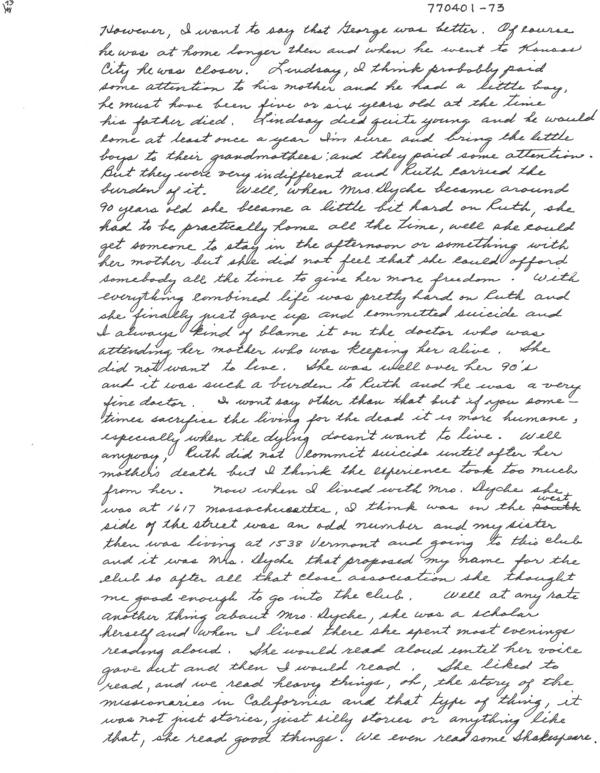 770401-73
However, I want to say that George was better. Of course
he was at home longer then and when he went to Kansas
City he was closer. Lindsay, I think probably paid
some attention to his mother and he had a little boy,
he must have been five or six years old at the time
his father died. Lindsay died quite young and he would
come at least once a year I'm sure and bring the little
boys to their grandmothers and they paid some attention.
But they were very indifferent and Ruth carried the
burden of it. Well, when Mrs. Dyche became around
90 years old she became a little bit hard on Ruth, she
had to be practically home all the time, well she could
get someone to stay in the afternoon or something with
her mother but she did not feel that she could afford
somebody all the time to give her more freedom. With
everything combined life was pretty hard on Ruth and
she finally just gave up and committed suicide and
I always kind of blame it on the doctor who was
attending her mother who was keeping her alive. She
did not want to live. She was well over her 90's
and it was such a burden to Ruth and he was a very
fine doctor. I wont say other than that but if you some-
times sacrifice the living for the dead it is more humane,
especially when the dying doesn't want to live. Well
anyway, Ruth did not commit suicide until after her
mother's death but I think the experience took too much
from her. Now when I lived with Mrs. Dyche she
was at 1617 Massachusetts, I think was on the south west
side of the street was an odd number and my sister
then was living at 1538 Vermont and going to this club
and it was Mrs. Dyche that proposed my name for the
club so after all that close association she thought
me good enough to go into the club. Well at any rate
another thing about Mrs. Dyche, she was a scholar
herself and when I lived there she spent most evenings
reading aloud. She would read aloud until her voice
gave out and then I would read. She liked to
read, and we read heavy things, oh, the story of the
missionaries in California and that type of thing, it
was not just stories, just silly stories or anything like
that, she read good things. We even read some Shakespeare.